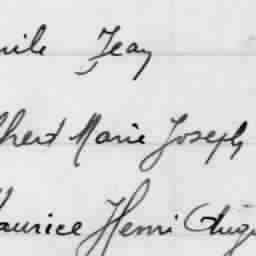 mile Jean
lbert Marie Joseph
aurice Henri Augu